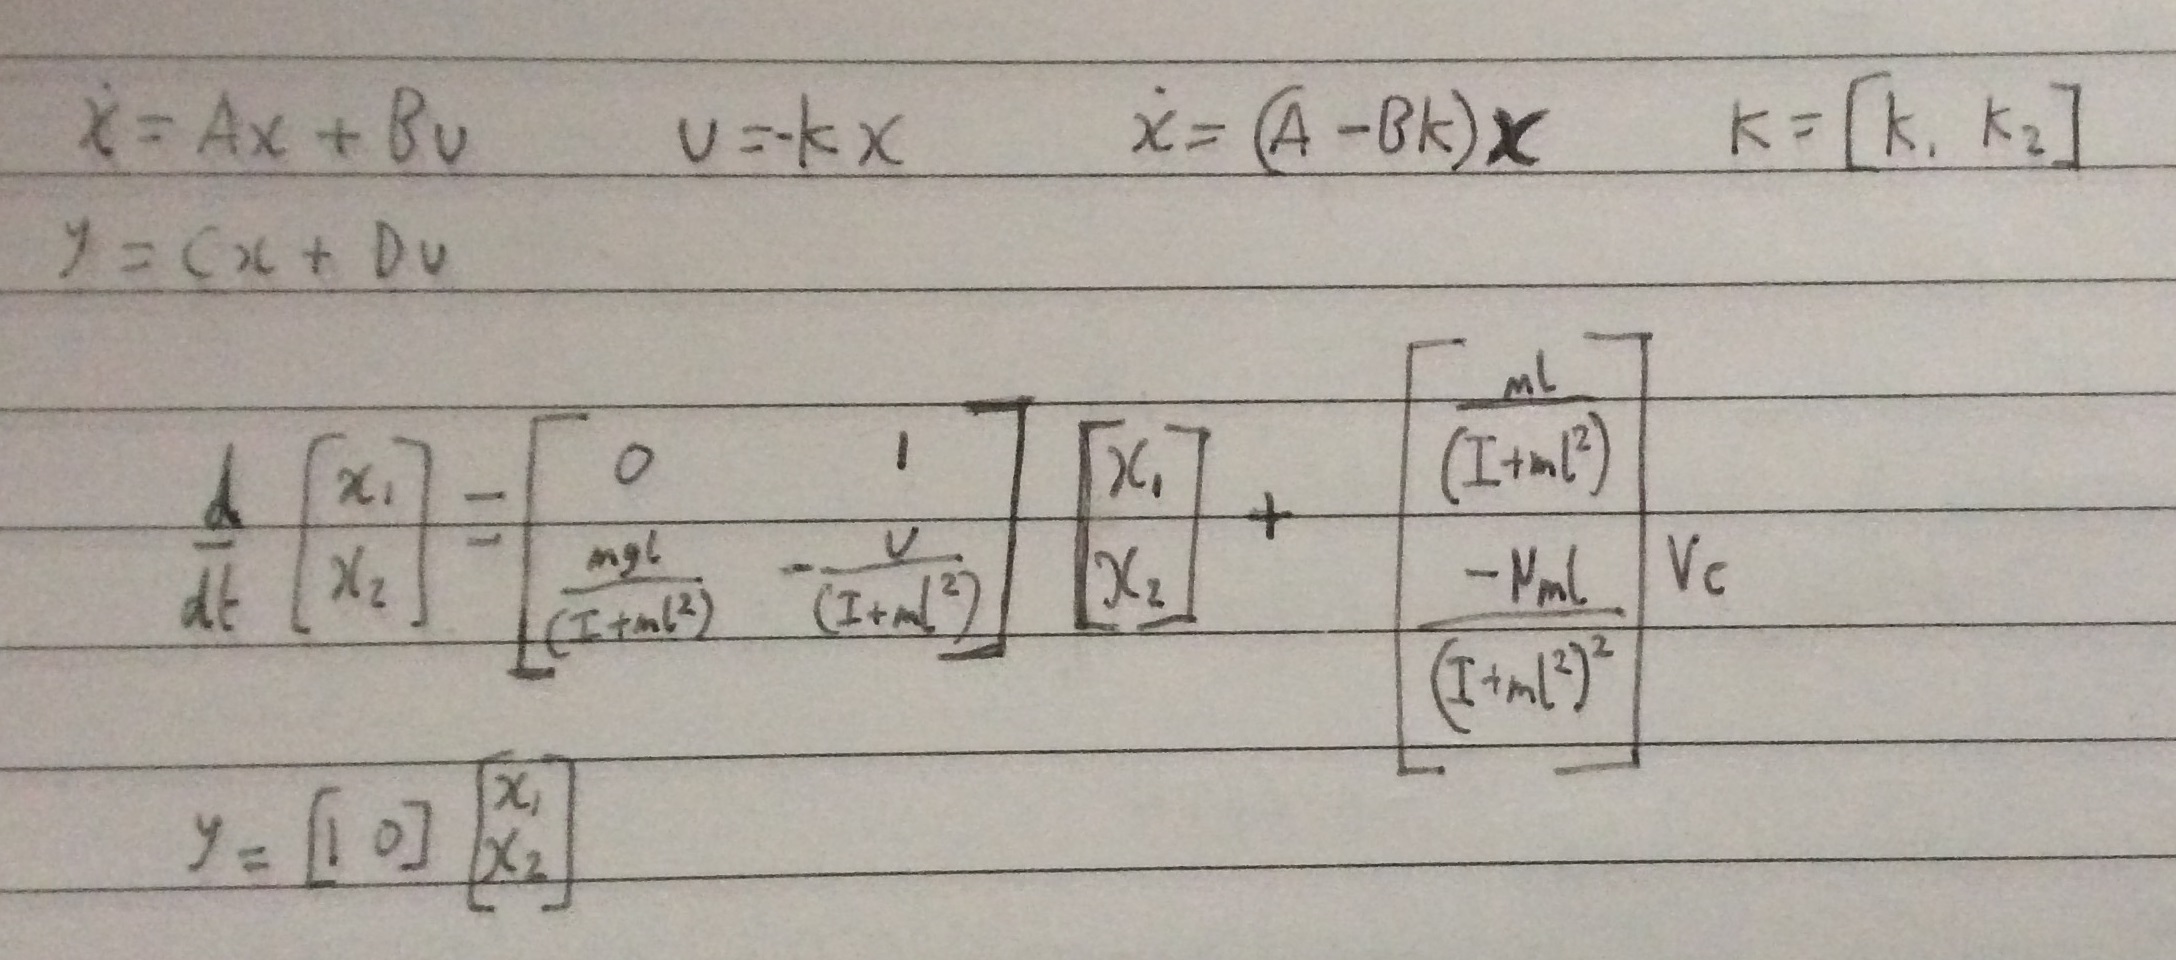 ẋ = Ax + Bu u = -kx ẋ = (A - Bk)x K = [k₁ k₂]
y = Cx + Du
d/dt [x₁; x₂] = [0 1; mgl/(I+ml²) -υ/(I+ml²)] [x₁; x₂] + [ml/(I+ml²); -μml/(I+ml²)²] Vc
y = [1 0] [x₁; x₂]